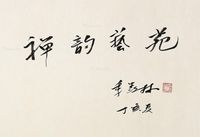 禅韵藝苑
季羡林
丁亥夏